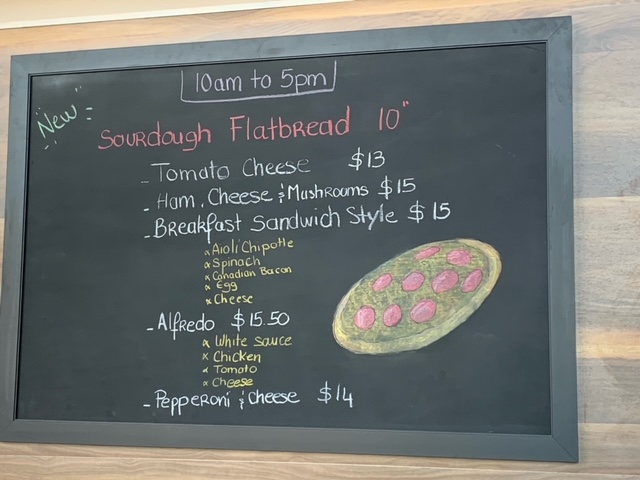 10am to 5pm
New
Sourdough Flatbread 10"
- Tomato Cheese $13
- Ham, Cheese & Mushrooms $15
- Breakfast Sandwich Style $15
x Aioli Chipotle
x Spinach
x Canadian Bacon
x Egg
x Cheese
- Alfredo $15.50
x White Sauce
x Chicken
x Tomato
x Cheese
- Pepperoni & Cheese $14